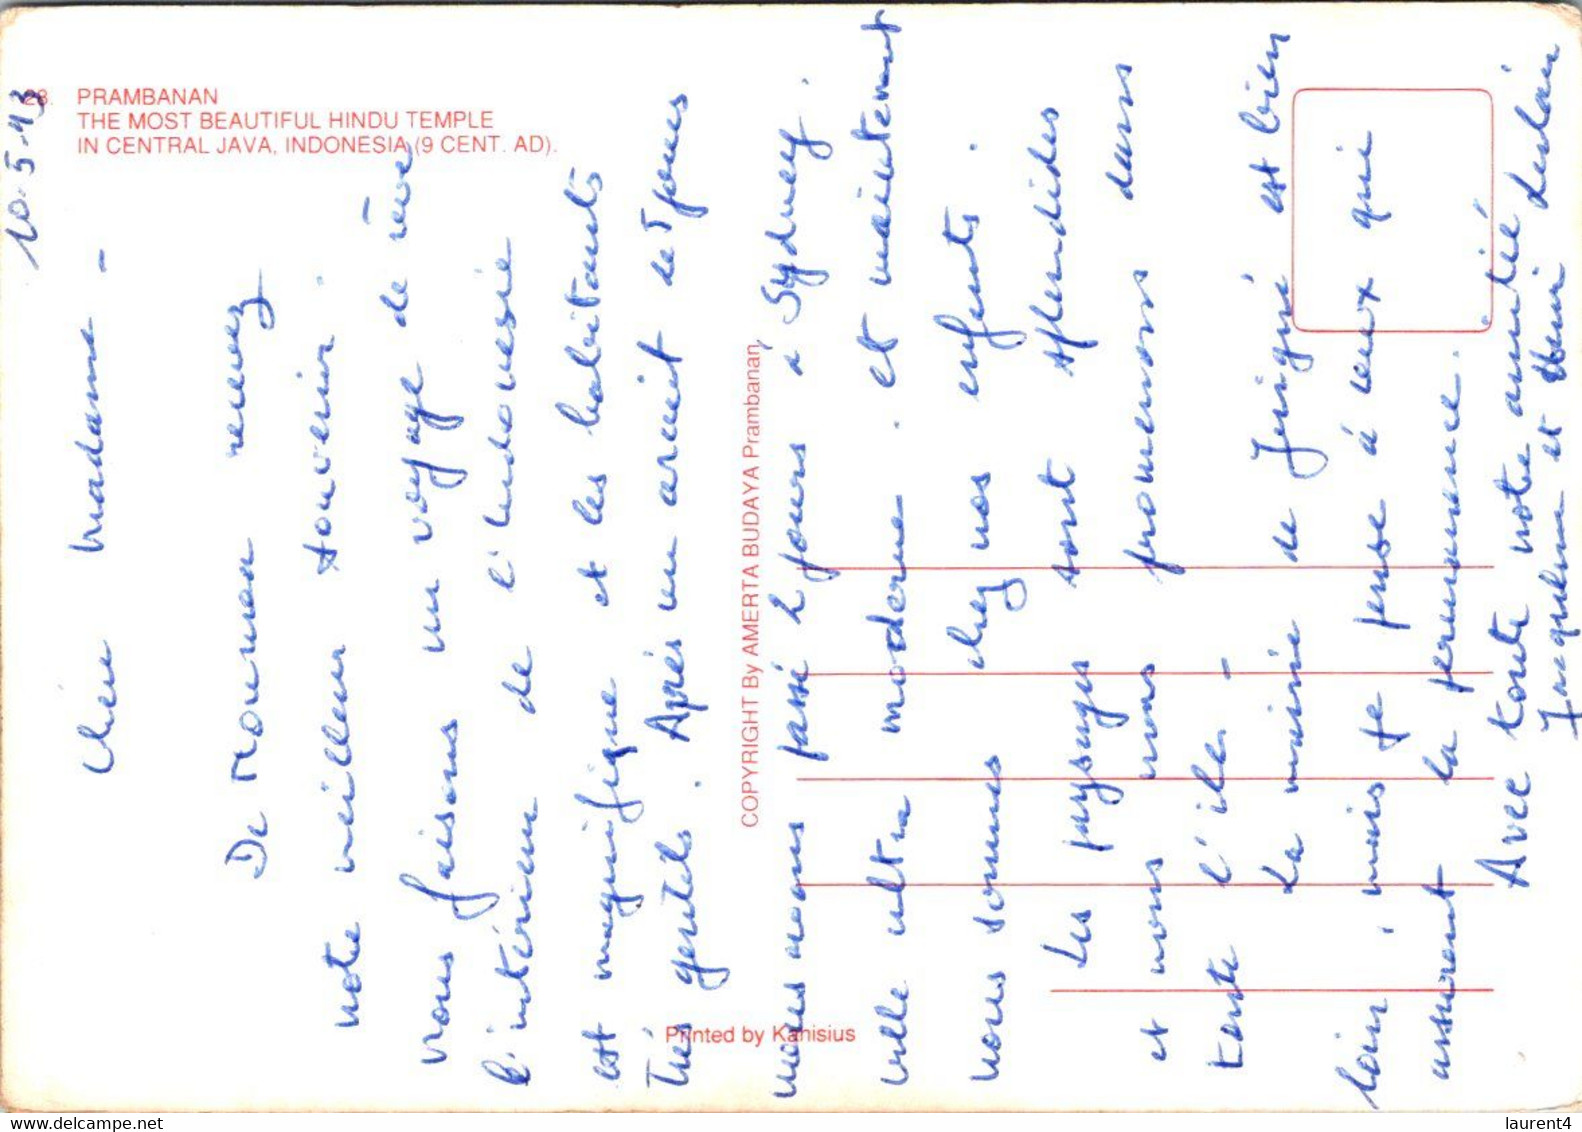 28. PRAMBANAN
THE MOST BEAUTIFUL HINDU TEMPLE
IN CENTRAL JAVA, INDONESIA (9 CENT. AD).
COPYRIGHT By AMERTA BUDAYA Prambanan,
Printed by Kanisius
10.5.93
Chère Madame -
De Nouméa recevez
notre meilleur souvenir.
Nous faisons un voyage de rêve
l'intérieur de l'Indonésie
est magnifique et les habitants
Très gentils. Après un arrêt de
nous avons passé 2 jours à Sydney.
ville ultra moderne. et maintenant
nous sommes chez nos enfants.
Les paysages sont splendides
et nous nous promenons dans
toute l'île -
La mairie de Joigné est bien
loin, mais je pense à ceux qui
assurent la permanence.
Avec toute notre amitié
Jacqueline et Henri
www.delcampe.net
laurent4